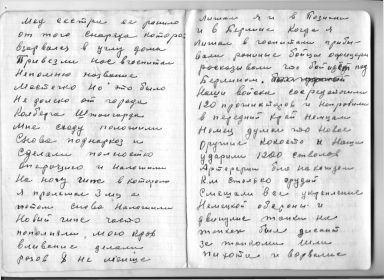 Мод сестри ее рошло
от того снаряда которо
взорвался в углу дома
Привезли нас в госпитали
Непомню название
Местечко Но это было
Не долеко от города
Колберга Штотгарда
Мне сразу положили
Снова поднаркоз и
Сделали полностю
Операцию и наложили
На ногу гипс в котором
Я пролежал 3 мц а
потом снова Наложили
Новый гипс часто
пополняли мою кров
вливание делали
розов 8 не менше
Лишал я и в Познани
и в Берлине Когда я
Лишал в госпитали прибы-
вали ранение бойци офицери
росказивали что бои идут под
Берлином.
Наши войска сосредоточили
120 прожикторов и Направили
в передний Край немцам
Немец думал что Новое
Оружие какоето и Наши
ударили 1200 стволов
Артилерии бил на каждом
Км столько орудий
Смешали все укрепление
Немецкой оборони и
двинулис танки на
танках били десант
За танками шли
пихота и ворвалис